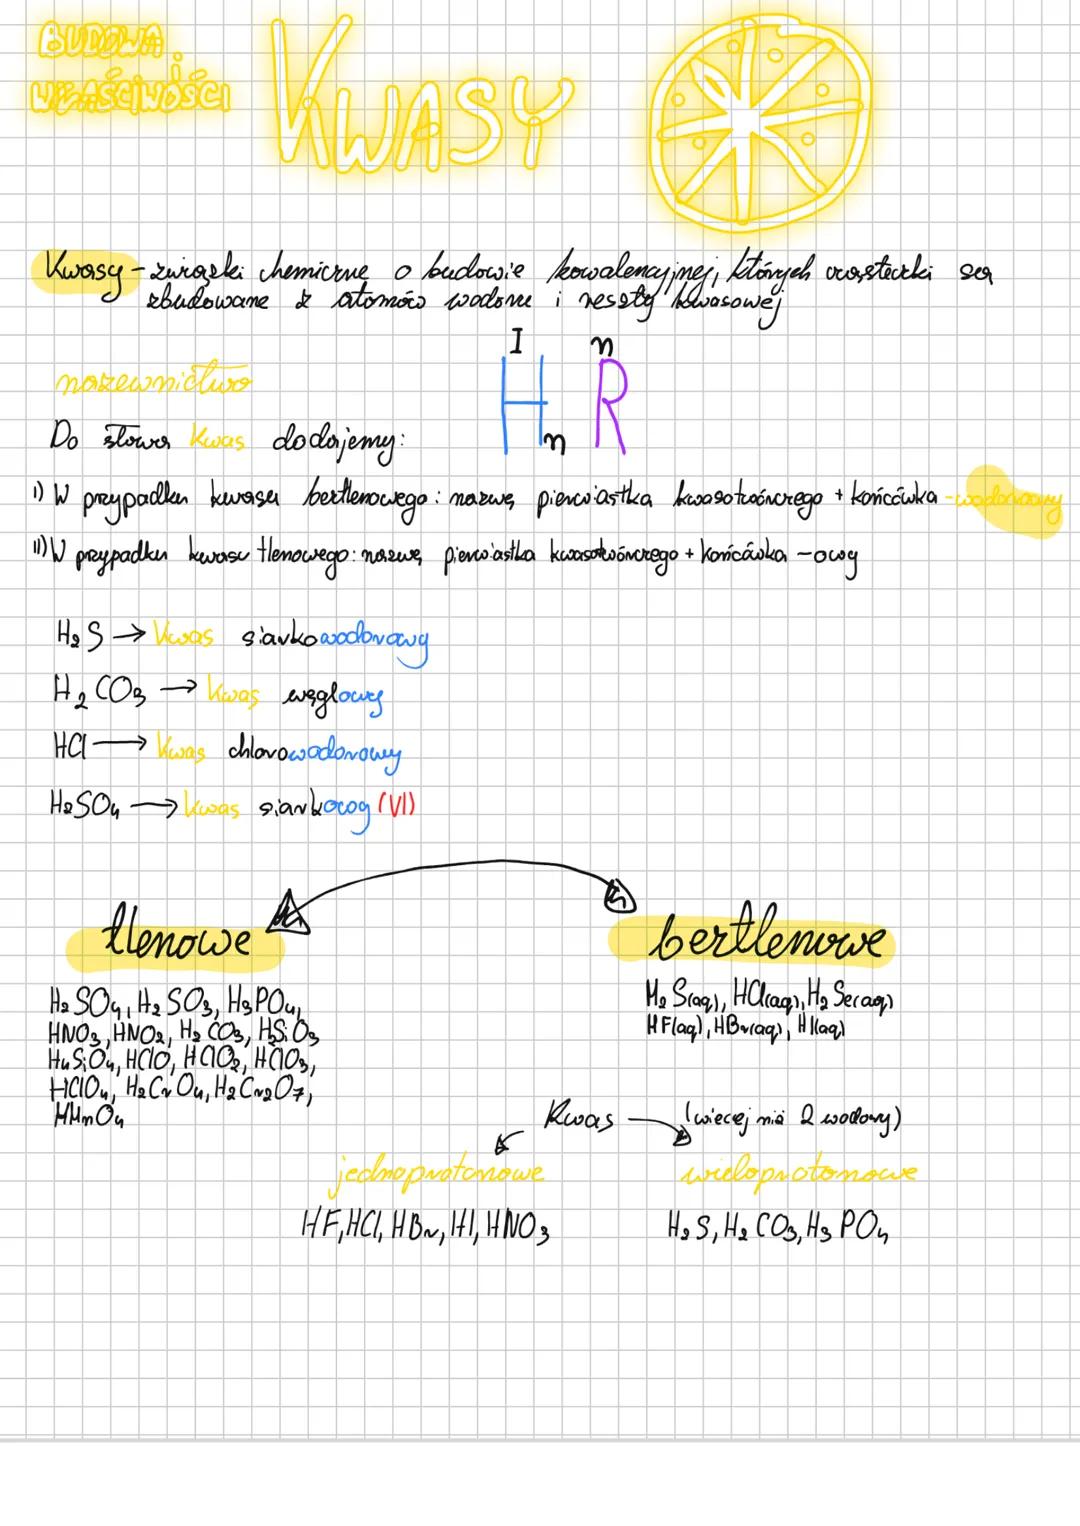 BUDOWA i
WŁAŚCIWOŚCI
KWASY
Kwasy - związki chemiczne o budowie kowalencyjnej, których cząsteczki są
zbudowane z atomów wodoru i reszty kwasowej
I n
HnR
nazewnictwo
Do słowa kwas dodajemy:
I) W przypadku kwasu beztlenowego: nazwę pierwiastka kwasotwórczego + końcówka -wodorowy
II) W przypadku kwasu tlenowego: nazwę pierwiastka kwasotwórczego + końcówka -owy
H₂S → Kwas siarkowodorowy
H₂CO₃ → Kwas węglowy
HCl → Kwas chlorowodorowy
H₂SO₄ → Kwas siarkowy (VI)
tlenowe beztlenowe
H₂SO₄, H₂SO₃, H₃PO₄,
HNO₃, HNO₂, H₂CO₃, H₂SiO₃
H₄SiO₄, HClO, HClO₂, HClO₃,
HClO₄, H₂CrO₄, H₂Cr₂O₇,
HMnO₄
H₂S(aq), HCl(aq), H₂Se(aq)
HF(aq), HBr(aq), HI(aq)
Kwas (więcej niż 2 wodory)
jednoprotonowe wieloprotonowe
HF, HCl, HBr, HI, HNO₃ H₂S, H₂CO₃, H₃PO₄